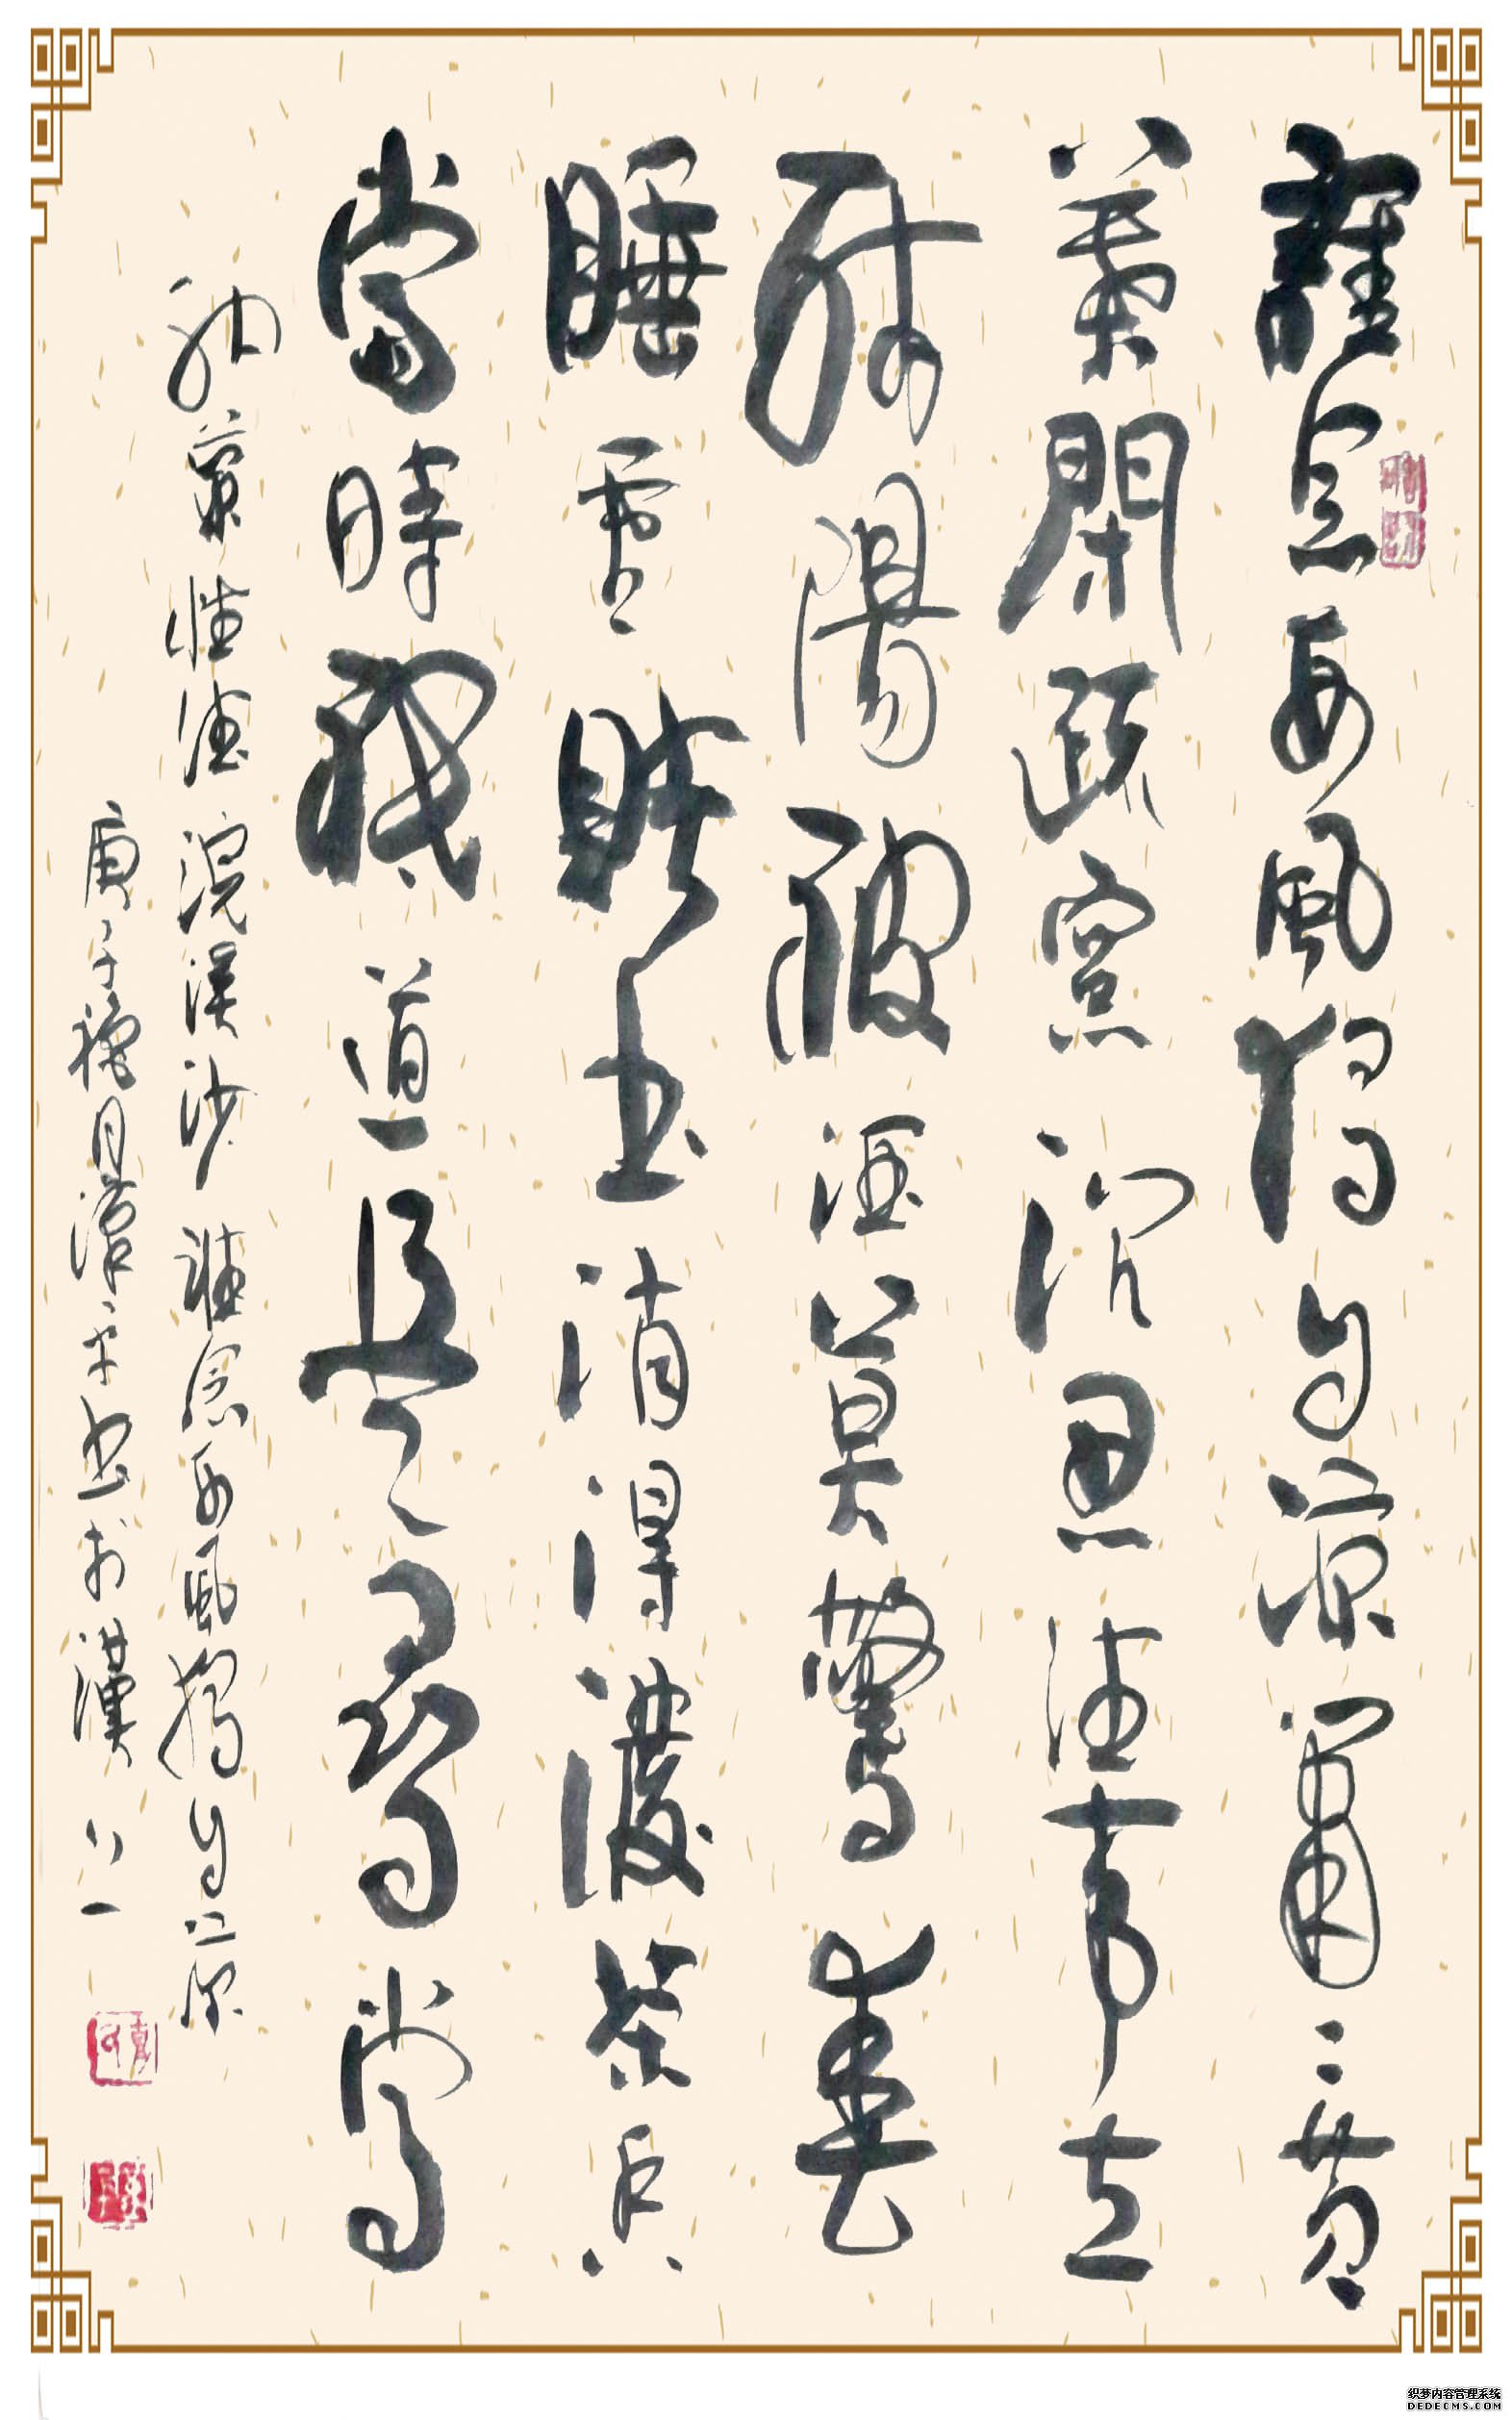 誰念西風獨自涼蕭二黄
葉閉疏窗沉思往事立
殘陽被酒莫驚春
睡重賭書消得潑茶香
當時祗道是尋常
納蘭性德浣溪沙 誰念西風獨自涼
庚子穐月漢平书於漢上
织梦内容管理系统
DEDECMS.COM